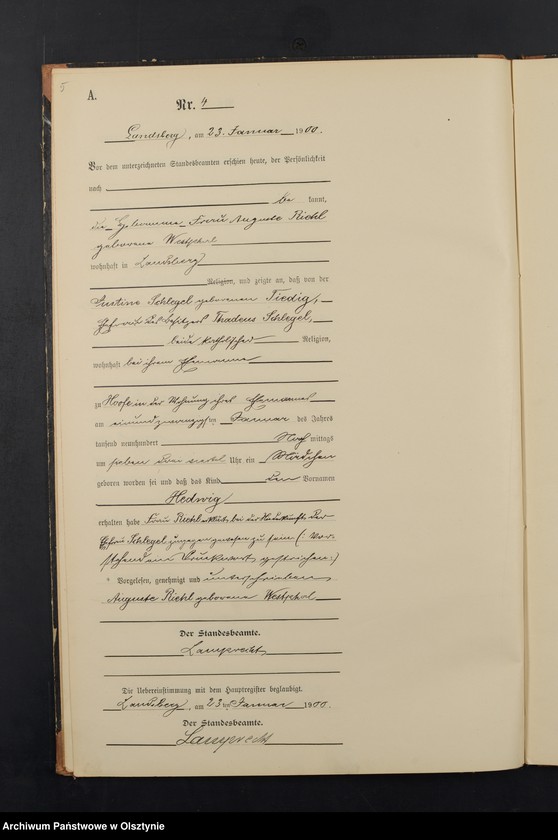 5
A.
Nr. 4
Landsberg, am 23. Januar 1900.
Vor dem unterzeichneten Standesbeamten erschien heute, der Persönlichkeit
nach
be kannt,
die Hebamme Frau Auguste Riehl
geborene Westphal
wohnhaft in Landsberg
Religion, und zeigte an, daß von der
Justine Schlegel geborenen Tiedig,
Ehefrau des Besitzers Thadeus Schlegel,
beide katholischer Religion,
wohnhaft bei ihrem Ehemanne
zu Hoofe in der Wohnung ihres Ehemannes
am einundzwanzigsten Januar des Jahres
tausend neunhundert Nach mittags
um sieben drei viertel Uhr ein Mädchen
geboren worden sei und daß das Kind den Vornamen
Hedwig
erhalten habe Frau Riehl erklärt, bei der Niederkunft der
Ehefrau Schlegel zugegen gewesen zu sein (: Vor-
stehend ein Druckwort gestrichen :)
Vorgelesen, genehmigt und unterschrieben
Auguste Riehl geborene Westphal
Der Standesbeamte.
Lamprecht
Die Uebereinstimmung mit dem Hauptregister beglaubigt.
Landsberg, am 23ten Januar 1900.
Der Standesbeamte.
Lamprecht
Archiwum Państwowe w Olsztynie